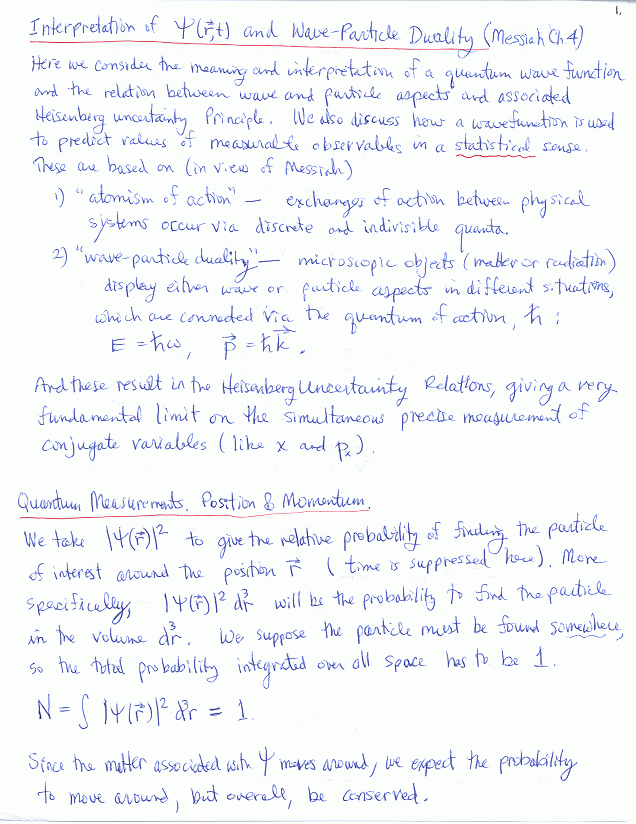 1.
Interpretation of Ψ(r⃗,t) and Wave-Particle Duality (Messiah Ch 4)
Here we consider the meaning and interpretation of a quantum wave function
and the relation between wave and particle aspects and associated
Heisenberg uncertainty Principle. We also discuss how a wavefunction is used
to predict values of measurable observables in a statistical sense.
These are based on (in view of Messiah)
1) "atomism of action" — exchanges of action between physical
systems occur via discrete and indivisible quanta.
2) "wave-particle duality" — microscopic objects (matter or radiation)
display either wave or particle aspects in different situations,
which are connected via the quantum of action, ħ :
E = ħω, p⃗ = ħk⃗.
And these result in the Heisenberg Uncertainty Relations, giving a very
fundamental limit on the simultaneous precise measurement of
conjugate variables (like x and pₓ).
Quantum Measurements. Position & Momentum.
We take |Ψ(r⃗)|² to give the relative probability of finding the particle
of interest around the position r⃗ (time is suppressed here). More
specifically, |Ψ(r⃗)|² d³r will be the probability to find the particle
in the volume d³r. We suppose the particle must be found somewhere,
so the total probability integrated over all space has to be 1.
N = ∫ |Ψ(r⃗)|² d³r = 1.
Since the matter associated with Ψ moves around, we expect the probability
to move around, but overall, be conserved.